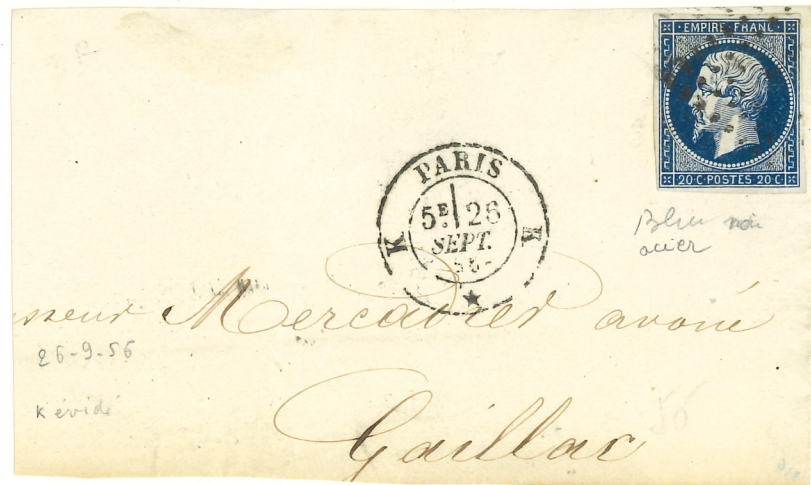 EMPIRE FRANC
20·C·POSTES 20·C·
PARIS
5E 26
SEPT.
K K
Bleu
acier
Mercadier avoué
26-9-56
K évidé
Gaillac